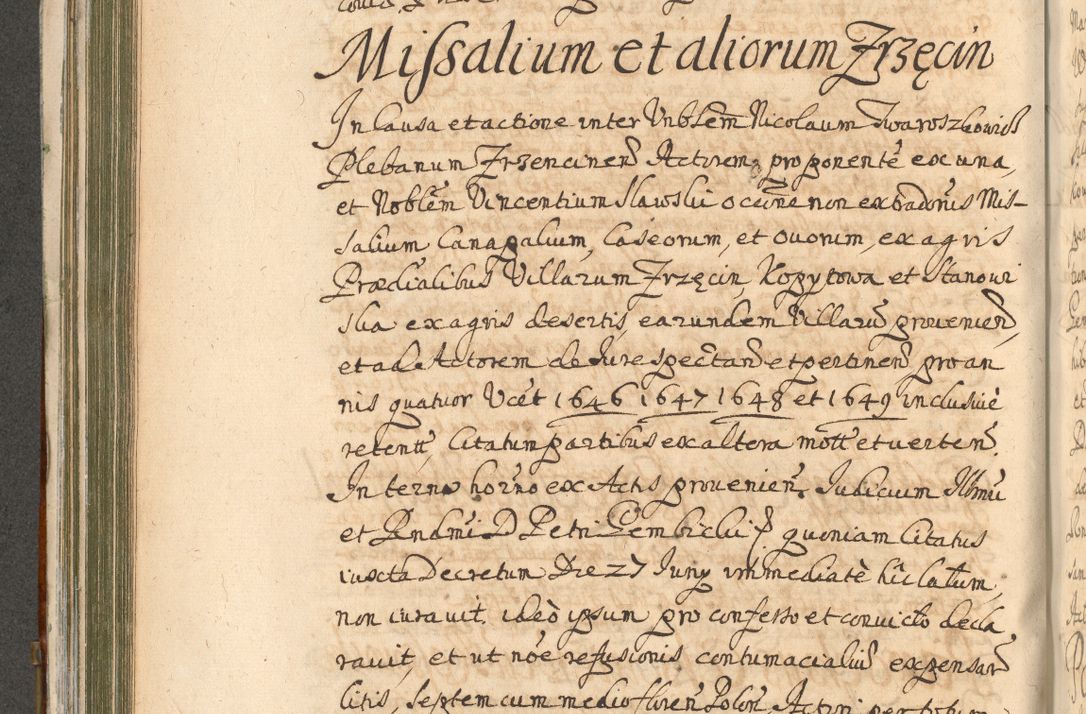 Missalium et aliorum Zrzęcin
In Causa et actione inter Vnblem Nicolaum Twaroszkowicz
Plebanum Zrzencinen Actorem proponente ex una,
et Noblem Vincentium Slawski occne non extraditionis Mis-
salium Canapalium, Caseorum, et Ovorum, ex agris
Prædialibus Villarum Zrzęcin, Kopytowa et Stanowi
ska ex agris desertis, earundem Villaru provenien,
et ad Actorem de Iure spectan et pertinen pro an
nis quatuor Vcet 1646 1647 1648 et 1649 inclusive
retent, Citatum partibus ex altera mott et verten.
In termo horno ex Actis provenien. Iudicium Illmi
et Rndmi D Petri Gembicki quoniam Citatus
iuxta Decretum Die 27 Iuny immediate hic latum,
non iuravit, ideo ipsum pro confesso et convicto decla
ravit, et ut noe refusionis contumacialiu expensar
litis, septem cum medio floren Polon, Actori